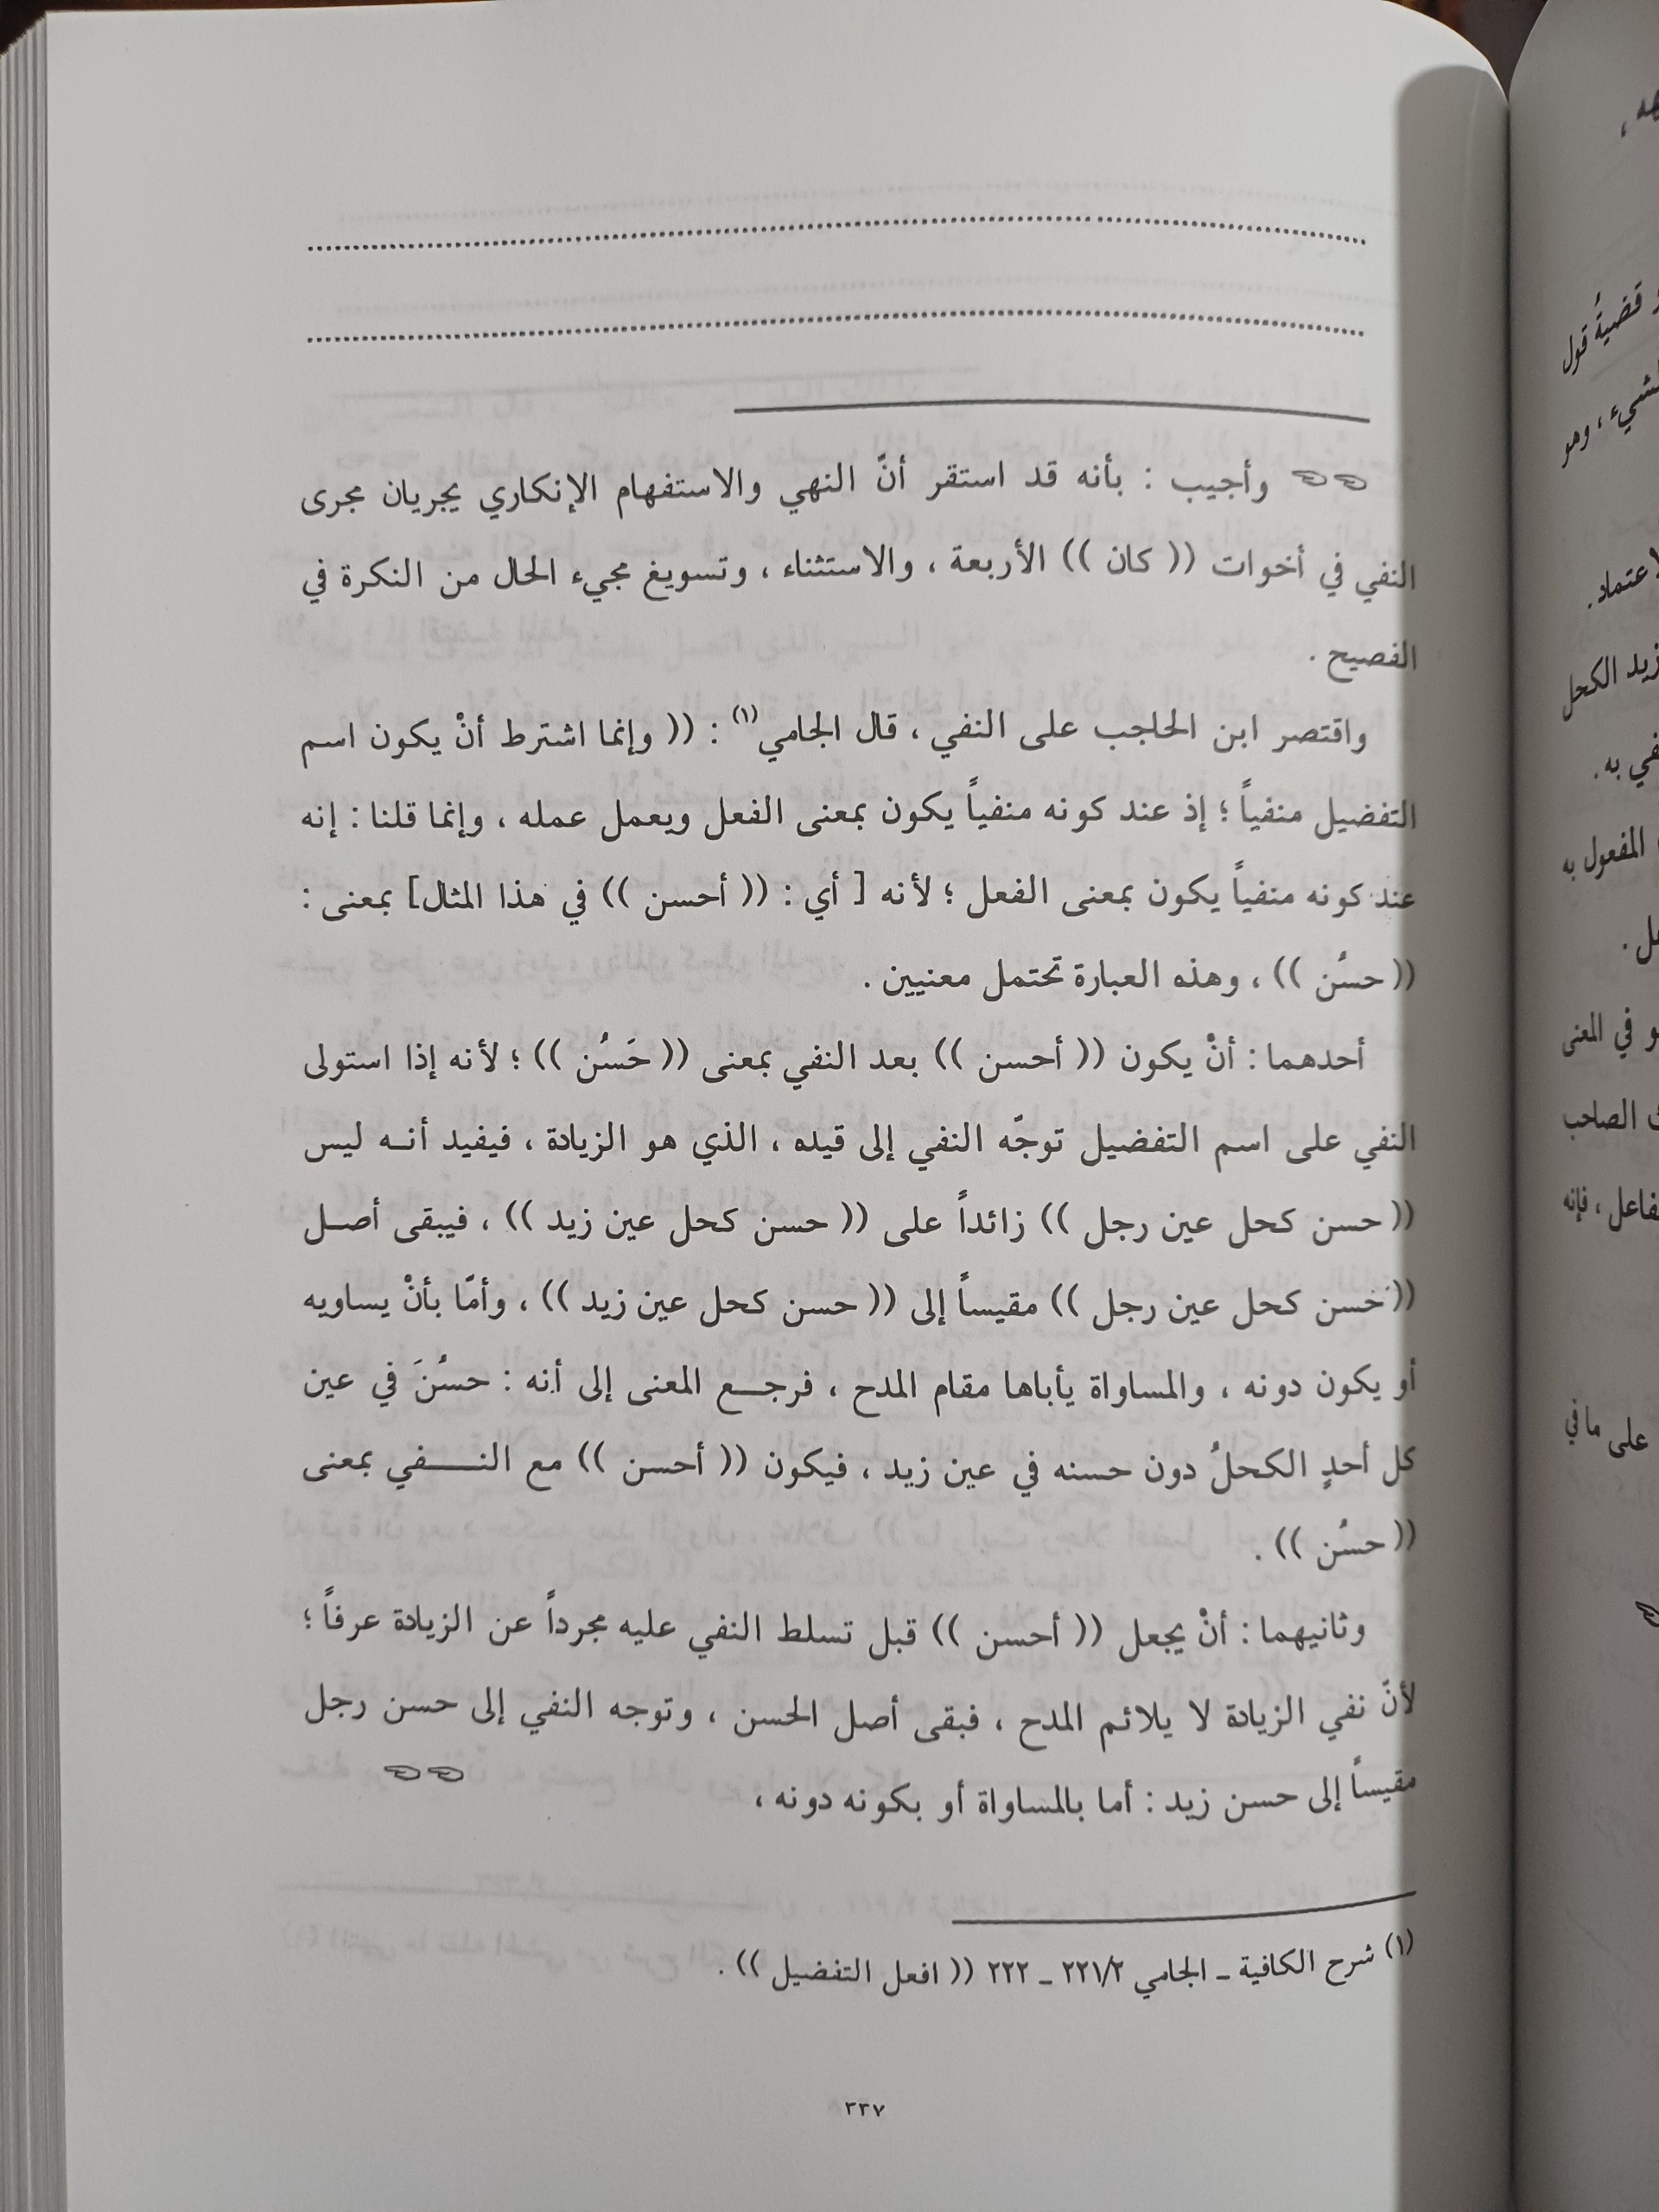 وأجيب : بأنه قد استقر أنّ النهي والاستفهام الإنكاري يجريان مجرى
النفي في أخوات (( كان )) الأربعة ، والاستثناء ، وتسويغ مجيء الحال من النكرة في
الفصيح .
واقتصر ابن الحاجب على النفي ، قال الجامي(١) : (( وإنما اشترط أنْ يكون اسم
التفضيل منفياً ؛ إذ عند كونه منفياً يكون بمعنى الفعل ويعمل عمله ، وإنما قلنا : إنه
عند كونه منفياً يكون بمعنى الفعل ؛ لأنه [ أي : (( أحسن )) في هذا المثال] بمعنى :
(( حسُن )) ، وهذه العبارة تحتمل معنيين .
أحدهما : أنْ يكون (( أحسن )) بعد النفي بمعنى (( حَسُن )) ؛ لأنه إذا استولى
النفي على اسم التفضيل توجّه النفي إلى قيده ، الذي هو الزيادة ، فيفيد أنه ليس
(( حسن كحل عين رجل )) زائداً على (( حسن كحل عين زيد )) ، فيبقى أصل
(( حسن كحل عين رجل )) مقيساً إلى (( حسن كحل عين زيد )) ، وأمّا بأنْ يساويه
أو يكون دونه ، والمساواة يأباها مقام المدح ، فرجع المعنى إلى أنه : حسُنَ في عين
كل أحدٍ الكحلُ دون حسنه في عين زيد ، فيكون (( أحسن )) مع النفي بمعنى
(( حسُن )) .
وثانيهما : أنْ يجعل (( أحسن )) قبل تسلط النفي عليه مجرداً عن الزيادة عرفاً ؛
لأنّ نفي الزيادة لا يلائم المدح ، فبقى أصل الحسن ، وتوجه النفي إلى حسن رجل
مقيساً إلى حسن زيد : أما بالمساواة أو بكونه دونه ،
(١) شرح الكافية ـ الجامي ٢٢١/٢ ـ ٢٢٢ (( افعل التفضيل )) .
٣٣٧
قضيةُ قول
وهو
زيد الكحل
المفعول به
في المعنى
الصاحب
فإنه
على ما في